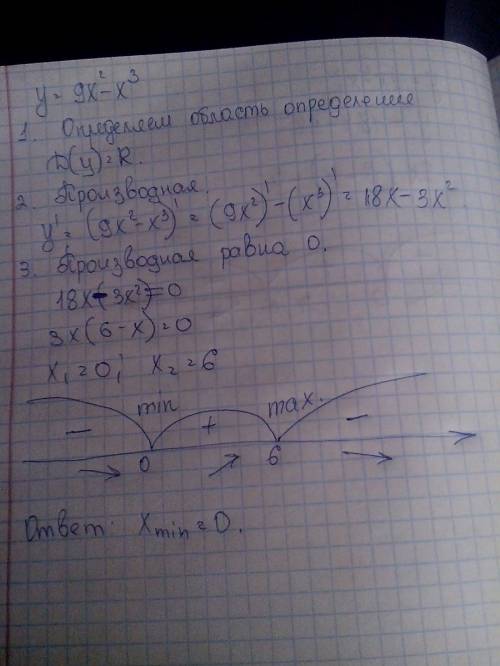 y = 9x² - x³
1. Определяем область определение
D(y) = R.
2. Производная.
y' = (9x² - x³)' = (9x²)' - (x³)' = 18x - 3x²
3. Производная равна 0.
18x - 3x² = 0
3x(6 - x) = 0
x₁ = 0; x₂ = 6
min max.
- + -
0 6
Ответ: x_min = 0.